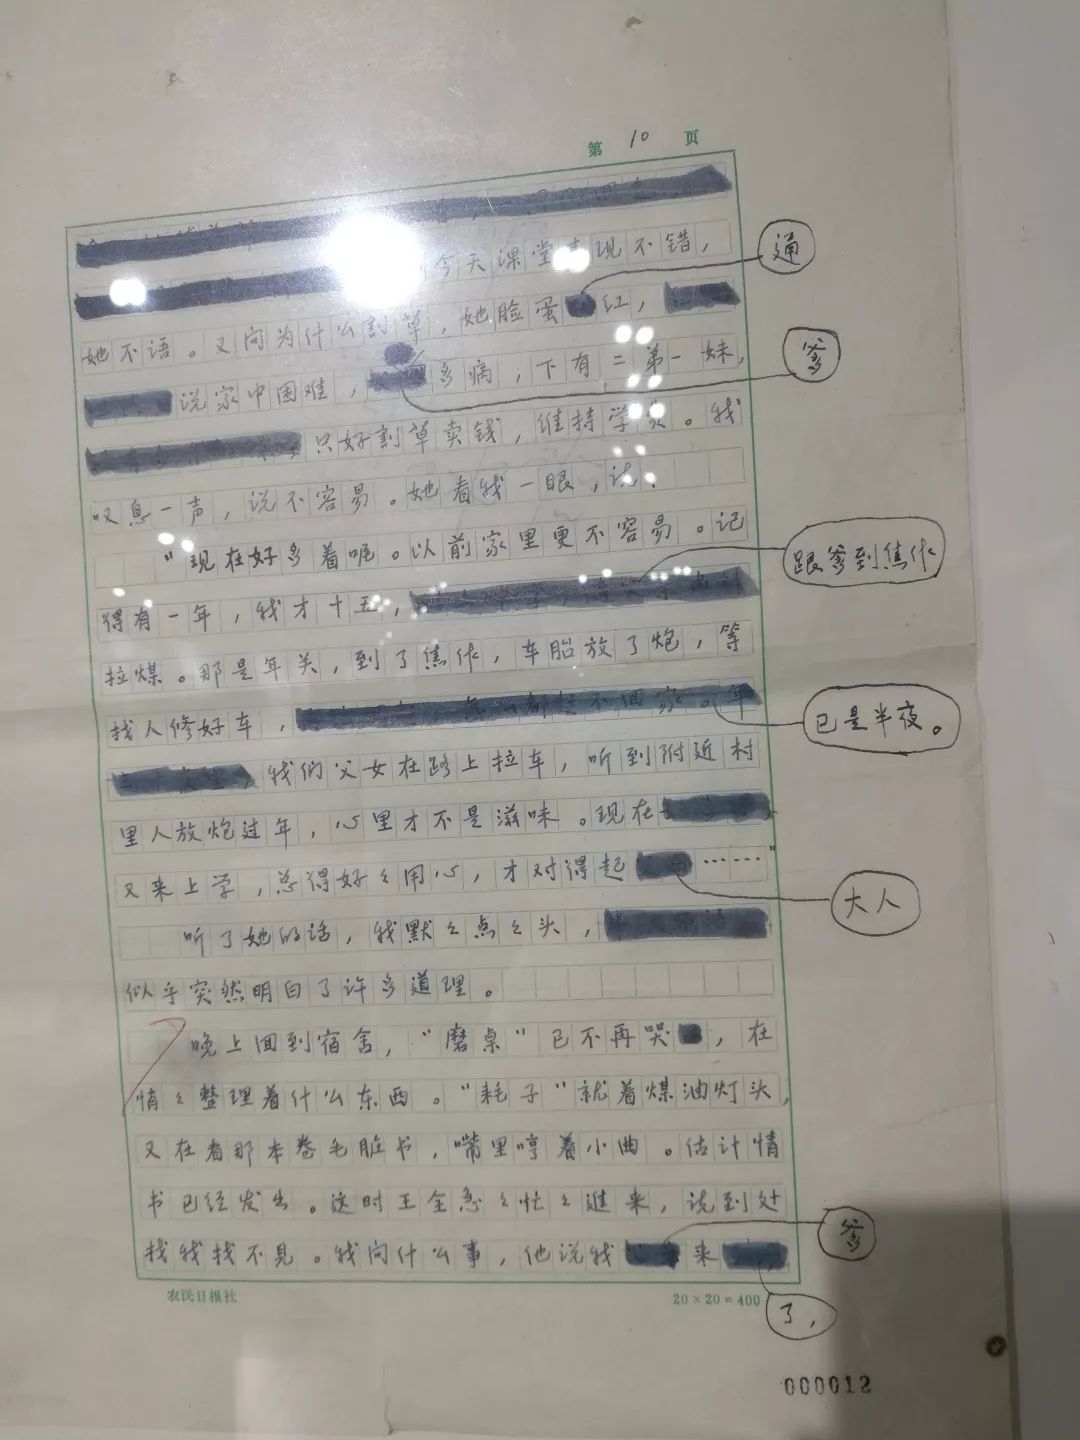 第 10 页
今天课堂表现不错，
通
她不语。又问为什么割草，她脸蛋红，
说家中困难，多病，下有二弟一妹，
爹
只好割草卖钱，维持学业。我
叹息一声，说不容易。她看我一眼，说：
“现在好多着呢。以前家里更不容易。记
跟爹到焦作
得有一年，我才十五，
拉煤。那是年关，到了焦作，车胎放了炮，等
找人修好车，
已是半夜。
我们父女在路上拉车，听到附近村
里人放炮过年，心里才不是滋味。现在
又来上学，总得好々用心，才对得起……”
大人
听了她的话，我默々点々头，
似乎突然明白了许多道理。
晚上回到宿舍，“磨桌”已不再哭，在
悄々整理着什么东西。“耗子”就着煤油灯头，
又在看那本卷毛脏书，嘴里哼着小曲。估计情
书已经发出。这时王全急々忙々进来，说到处
找我找不见。我问什么事，他说我来
爹
了，
农民日报社
20×20=400
000012